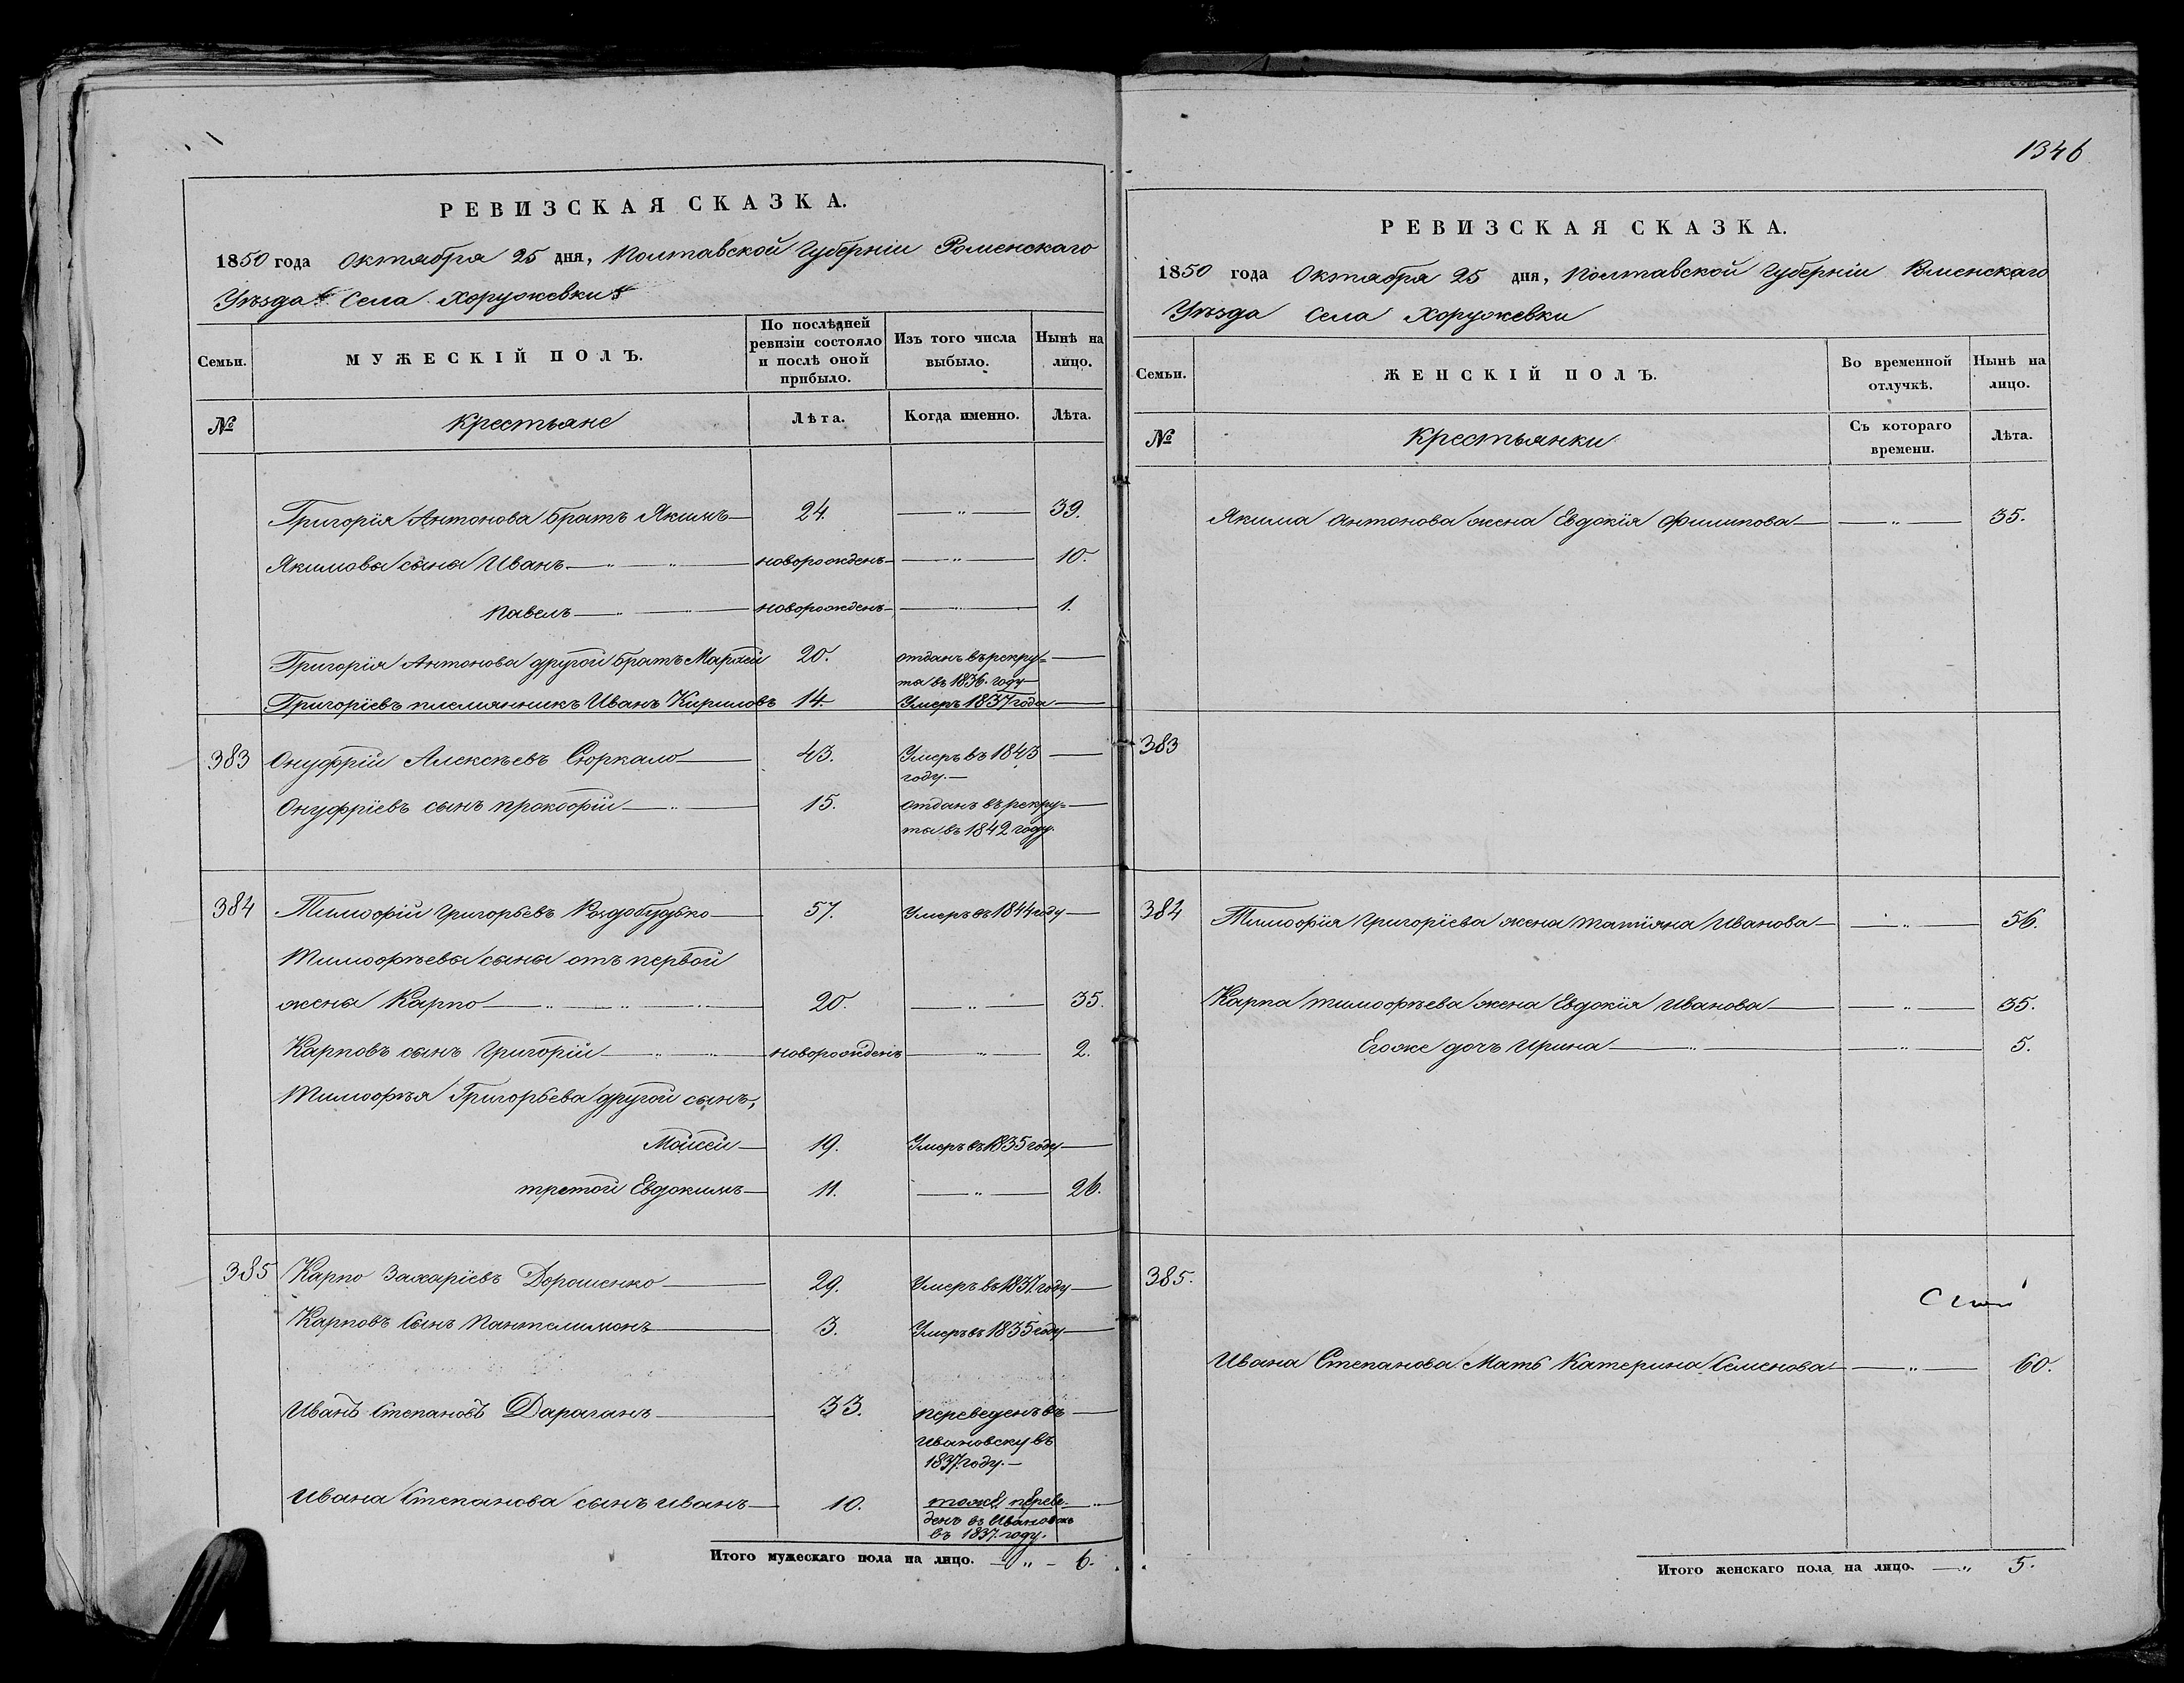 РЕВИЗСКАЯ СКАЗКА.
1850 года Октября 25 дня, Полтавской Губерніи Роменскаго
Уѣзда Села Хоружевки
Семьи.
МУЖЕСКІЙ ПОЛЪ.
По послѣдней ревизіи состояло и послѣ оной прибыло.
Изъ того числа выбыло.
Нынѣ на лицо.
№
Крестьяне
Лѣта.
Когда именно.
Лѣта.
Григорія Антонова братъ Якимъ 24. " 39.
Якимовы сыны Иванъ " " новорожденъ " 10.
Павелъ " новорожденъ " 1.
Григорія Антонова другой братъ 20. отданъ въ рекру=
ты въ 1836. году
Григоріевъ племянникъ Иванъ Кириловъ 14. Умеръ 1837 года
383 Онуфрій Алексѣевъ Сюркало 43. Умеръ въ 1843
году.
Онуфріевъ сынъ Прокофій " 15. отданъ въ рекру=
ты въ 1842 году.
384 Тимофій Григорьевъ 57. Умеръ въ 1844 году
Тимофѣевы сыны отъ первой
жены Карпо " " " 20. " 35.
Карповъ сынъ Григорій " " новорожденъ " 2.
Тимофѣя Григорьева другой сынъ,
Моисей 19. Умеръ въ 1835 году
третой Евдокимъ 11. " 26.
385 Карпо Захаріевъ Дорошенко 29. Умеръ въ 1837. году
Карповъ сынъ Пантелимонъ 3. Умеръ въ 1835 году
Иванъ Степановъ Дараганъ 33. переведенъ въ
Ивановску въ
1837. году.
Ивана Степанова сынъ Иванъ 10. тоже переве-
денъ въ
въ 1837. году.
Итого мужескаго пола на лицо. " 6.
1346
РЕВИЗСКАЯ СКАЗКА.
1850 года Октября 25 дня, Полтавской Губерніи Роменскаго
Уѣзда Села Хоружевки
Семьи.
ЖЕНСКІЙ ПОЛЪ.
Во временной отлучкѣ.
Нынѣ на лицо.
№
Крестьянки
Съ котораго времени.
Лѣта.
Якима Антонова жена Евдокія Филипова " 35.
383
384 Тимофія Григоріева жена Татіяна Иванова " 56.
Карпа Тимофѣева жена Евдокія Иванова " 35.
Егоже дочъ Ирина " " 5.
385.
Ивана Степанова Мать Катерина Семенова " 60.
Итого женскаго пола на лицо. " 5.